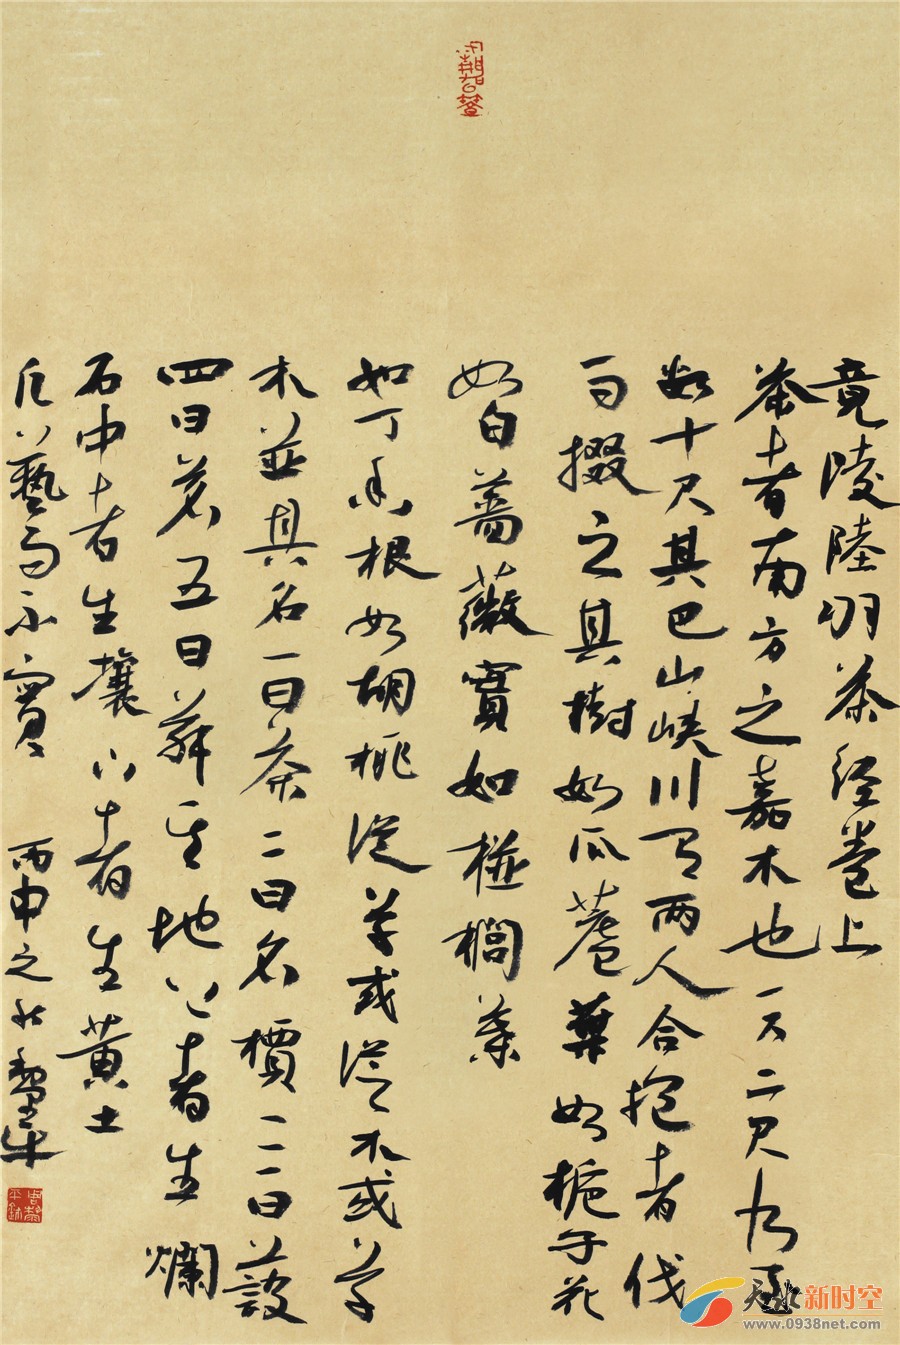 竟陵陸羽茶經卷上
茶者南方之嘉木也一尺二尺乃至
数十尺其巴山峽川有两人合抱者伐
而掇之其樹如瓜蘆葉如梔子花
如白薔薇實如栟櫚葉
如丁香根如胡桃從草或從木或草
木並其名一曰茶二曰名檟三曰蔎
四曰茗五曰荈其地上者生爛
石中者生壤下者生黄土
凡藝而不實 丙申之秋
天水新时空
www.0938net.com